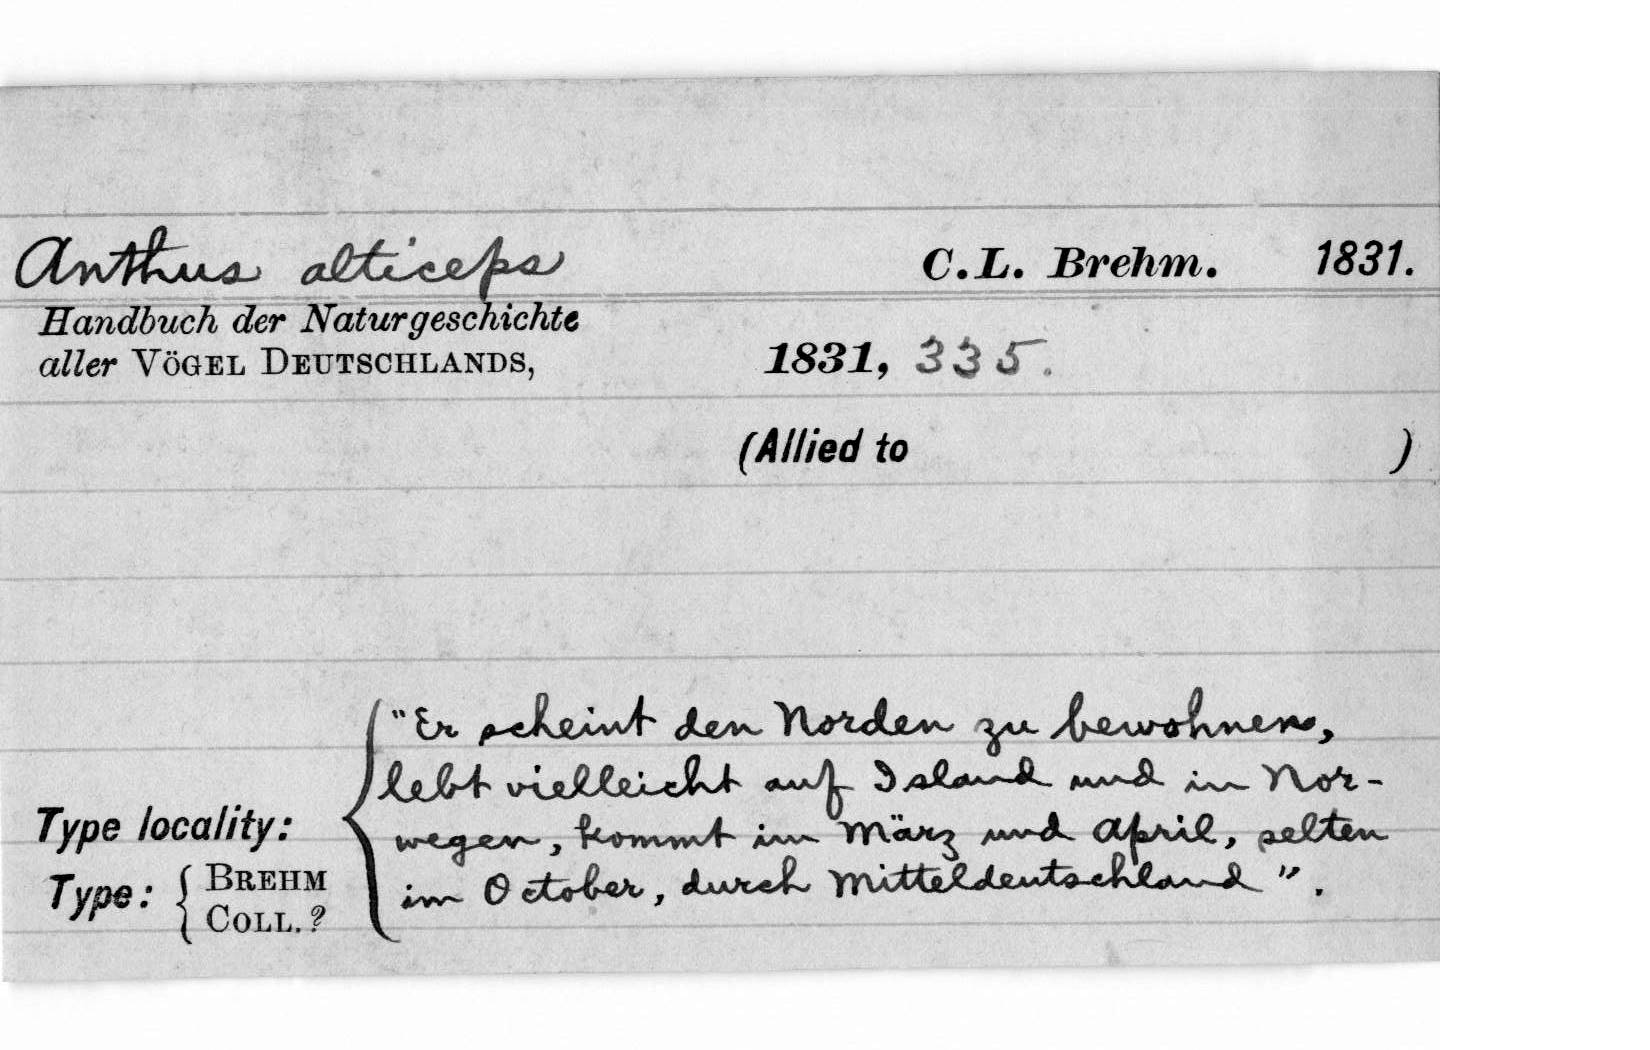 Anthus alticeps C. L. Brehm. 1831.
Handbuch der Naturgeschichte
aller VÖGEL DEUTSCHLANDS, 1831, 335.
(Allied to )
"Er scheint den Norden zu bewohnen,
lebt vielleicht auf Island und in Nor-
wegen, kommt im März und April, selten
im October, durch Mitteldeutschland".
Type locality:
Type: BREHM
COLL.?